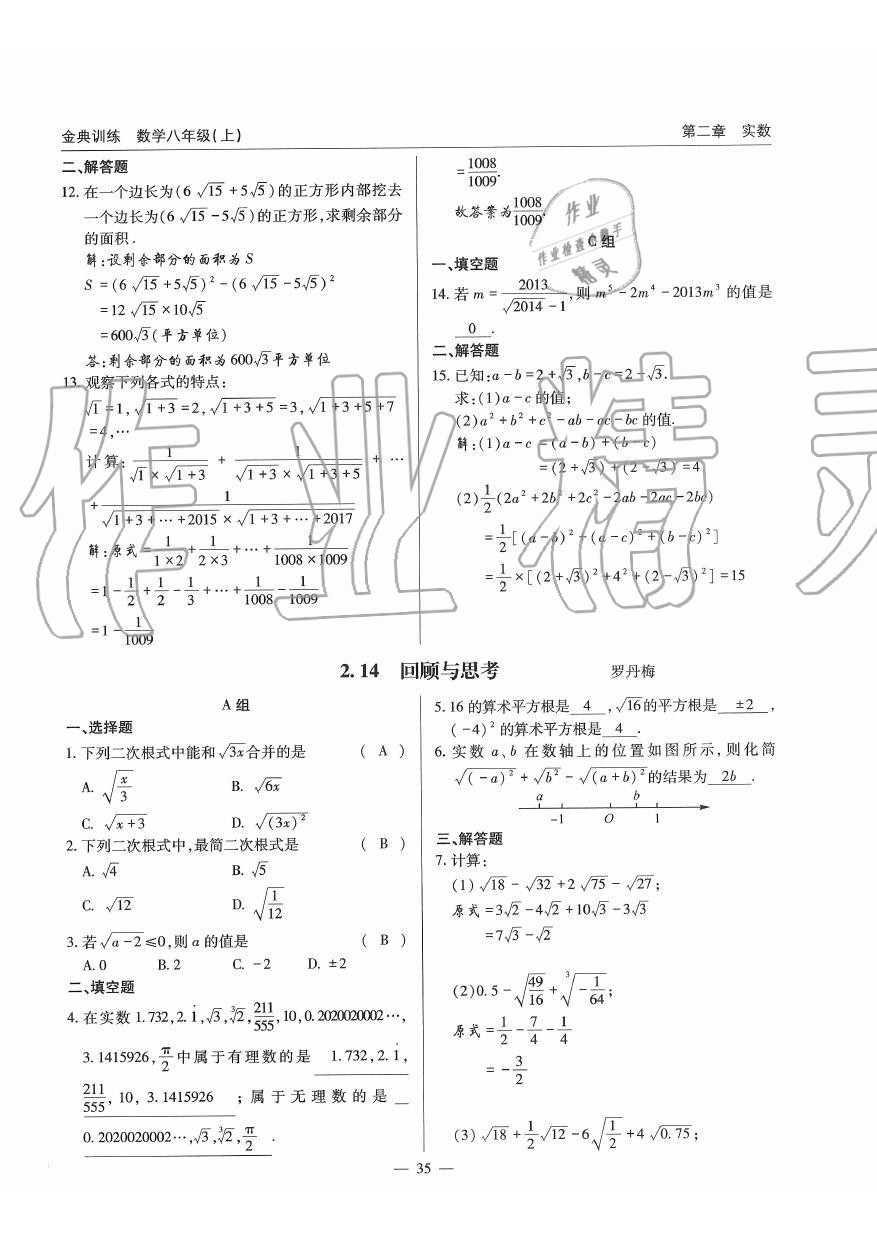 金典训练　数学八年级(上)
第二章　实数
二、解答题
12. 在一个边长为(6√15+5√5)的正方形内部挖去
一个边长为(6√15-5√5)的正方形,求剩余部分
的面积.
解:设剩余部分的面积为S
S=(6√15+5√5)²-(6√15-5√5)²
=12√15×10√5
=600√3(平方单位)
答:剩余部分的面积为600√3平方单位
13. 观察下列各式的特点:
√1=1,√(1+3)=2,√(1+3+5)=3,√(1+3+5+7)
=4,…
计算:1/(√1×√(1+3)) + 1/(√(1+3)×√(1+3+5)) + …
+ 1/(√(1+3+…+2015)×√(1+3+…+2017))
解:原式=1/(1×2)+1/(2×3)+…+1/(1008×1009)
=1-1/2+1/2-1/3+…+1/1008-1/1009
=1-1/1009
=1008/1009.
故答案为1008/1009.
C组
一、填空题
14. 若m=2013/(√2014-1),则m⁵-2m⁴-2013m³的值是
0 .
二、解答题
15. 已知:a-b=2+√3,b-c=2-√3.
求:(1)a-c的值;
(2)a²+b²+c²-ab-ac-bc的值.
解:(1)a-c=(a-b)+(b-c)
=(2+√3)+(2-√3)=4
(2)1/2(2a²+2b²+2c²-2ab-2ac-2bc)
=1/2[(a-b)²+(a-c)²+(b-c)²]
=1/2×[(2+√3)²+4²+(2-√3)²]=15
作业
作业检查小助手
精灵
作业精灵
2.14　回顾与思考　罗丹梅
A组
一、选择题
1. 下列二次根式中能和√3x合并的是 ( A )
A. √(x/3)　B. √6x
C. √(x+3)　D. √(3x)²
2. 下列二次根式中,最简二次根式是 ( B )
A. √4　B. √5
C. √12　D. √(1/12)
3. 若√(a-2)≤0,则a的值是 ( B )
A. 0　B. 2　C. -2　D. ±2
二、填空题
4. 在实数1.732,2.1̇,√3,∛2,211/555,10,0.2020020002…,
3.1415926,π/2中属于有理数的是 1.732,2.1̇,
211/555,10,3.1415926 ;属于无理数的是
0.2020020002…,√3,∛2,π/2 .
5. 16的算术平方根是 4 ,√16的平方根是 ±2 ,
(-4)²的算术平方根是 4 .
6. 实数a、b在数轴上的位置如图所示,则化简
√(-a)²+√b²-√(a+b)²的结果为 2b .
a　b
-1　O　1
三、解答题
7. 计算:
(1)√18-√32+2√75-√27;
原式=3√2-4√2+10√3-3√3
=7√3-√2
(2)0.5-√(49/16)+∛(-1/64);
原式=1/2-7/4-1/4
=-3/2
(3)√18+1/2√12-6√(1/2)+4√0.75;
— 35 —